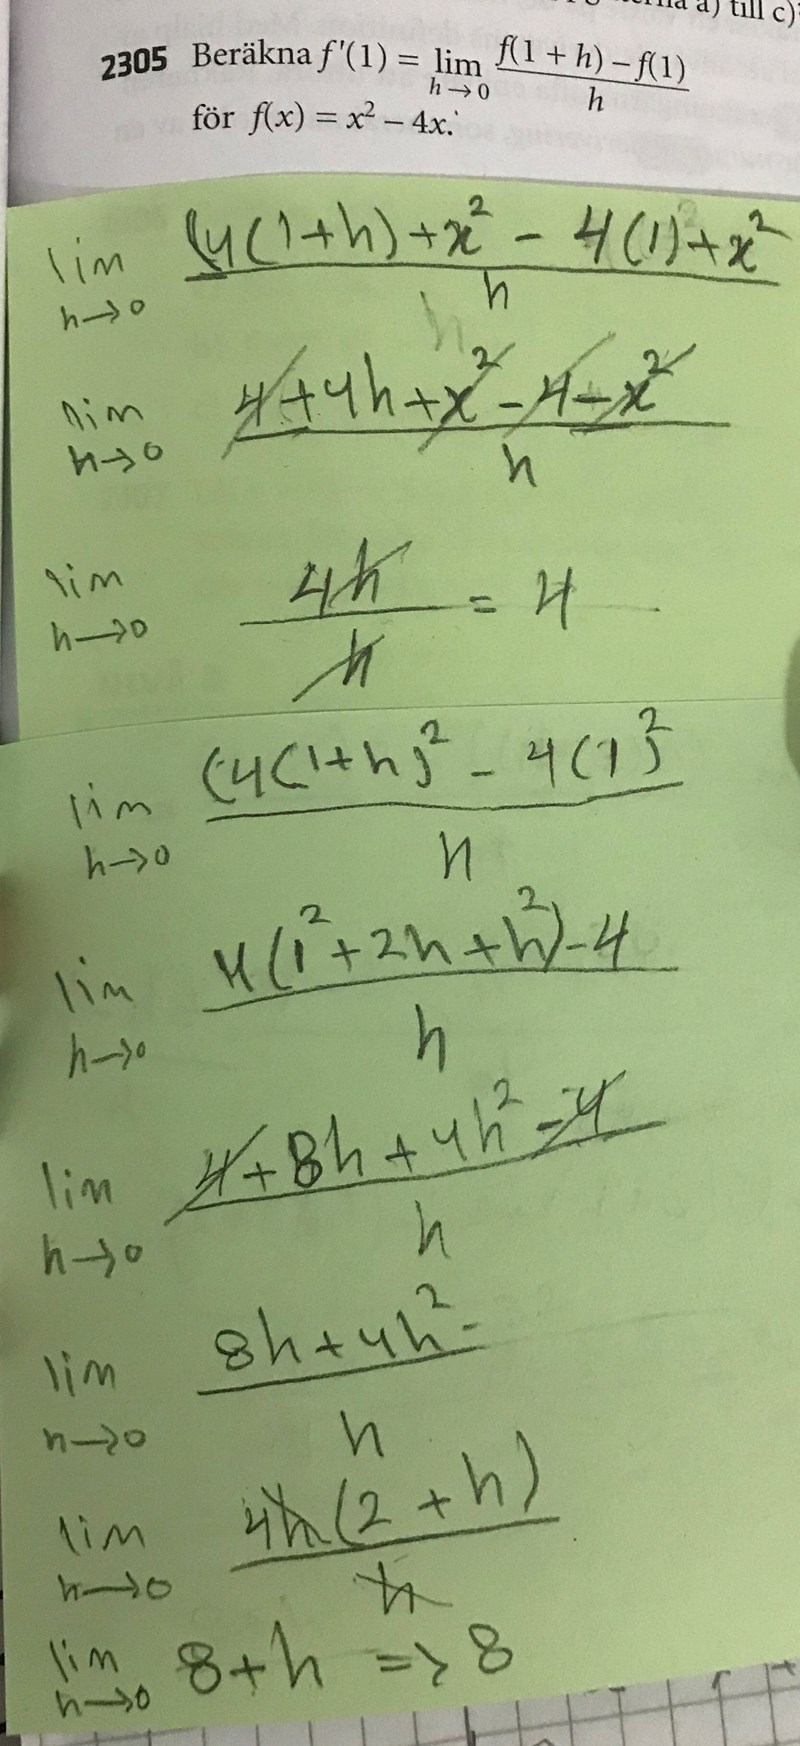 a) till c)
2305 Beräkna f'(1) = lim h→0 f(1 + h) – f(1) / h
för f(x) = x² – 4x.
lim h→0 (4(1+h)+x² - 4(1)+x² / h
lim h→0 4+4h+x²-4-x² / h
lim h→0 4h / h = 4
lim h→0 (4(1+h)² - 4(1)² / h
lim h→0 4(1²+2h+h²)-4 / h
lim h→0 4+8h+4h²-4 / h
lim h→0 8h+4h²- / h
lim h→0 4h(2+h) / h
lim h→0 8+h => 8